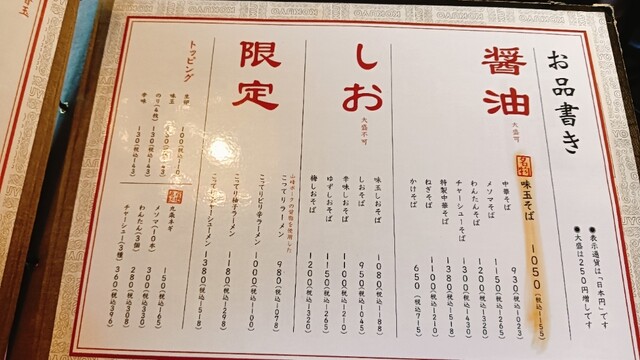 お品書き
●表示通貨は「日本円」です
●大盛は250円増しです
醤油
大盛可
名物 味玉そば 1050(税込1155)
中華そば 930(税込1023)
メンマそば 1150(税込1265)
わんたんそば 1200(税込1320)
チャーシューそば 1300(税込1430)
特製中華そば 1380(税込1518)
ねぎそば 1100(税込1210)
かけそば 650(税込715)
しお
大盛不可
味玉しおそば 1080(税込1188)
しおそば 950(税込1045)
辛味しおそば 1100(税込1210)
ゆずしおそば 1150(税込1265)
梅しおそば 1200(税込1320)
限定
こってりラーメン 980(税込1078)
こってりピリ辛ラーメン 1000(税込1100)
こってり柚子ラーメン 1180(税込1298)
こってりチャーシューメン 1380(税込1518)
トッピング
味玉 130(税込143)
のり(4枚) 130(税込143)
辛味 130(税込143)
九条ネギ 150(税込165)
メンマ(10本) 300(税込330)
わんたん(3個) 280(税込308)
チャーシュー(3種) 360(税込396)